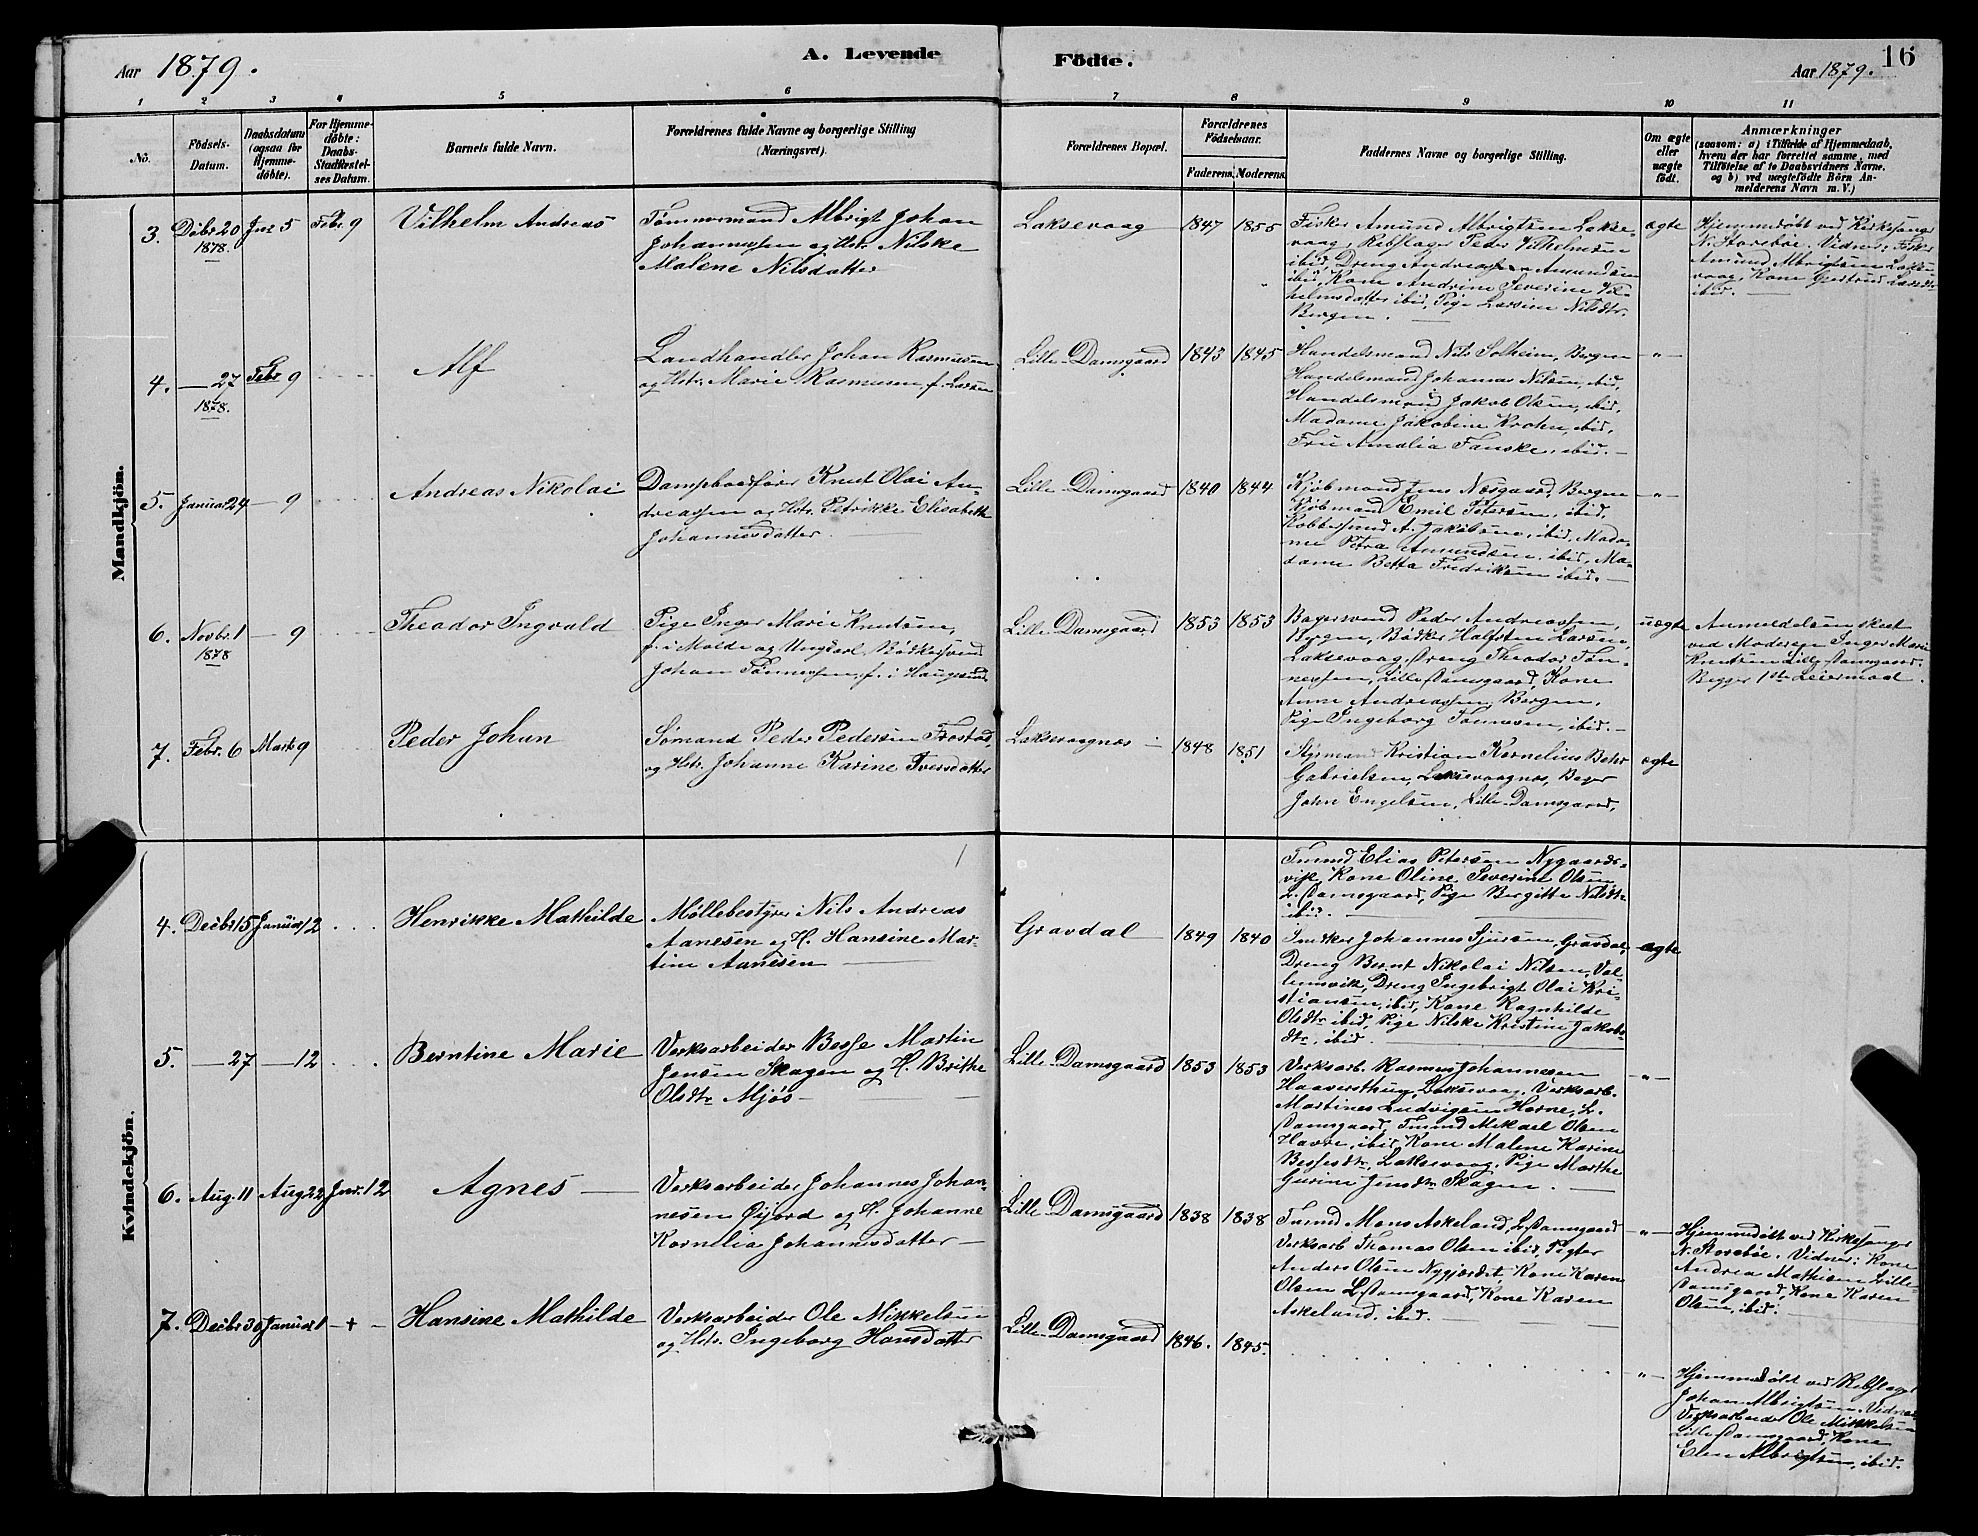 Aar 1879.
A. Levende
Födte.
Aar 1879.
16
1 2 3 4 5 6 7 8 9 10 11
No.
Födsels-
Datum.
Daabsdatum
(ogsaa for
Hjemme-
døbte).
For Hjemme-
döbte:
Daabs-
Stadfæstel-
ses Datum.
Barnets fulde Navn.
Forældrenes fulde Navne og borgerlige Stilling
(Næringsvei).
Forældrenes Bopæl.
Forældrenes
Födselsaar.
Faderens. Moderens.
Faddernes Navne og borgerlige Stilling.
Om ægte
eller
uægte
födt.
Anmærkninger
(saasom: a) i Tilfælde af Hjemmedaab,
hvem der har forrettet samme, med
Tilföielse af to Daabsvidners Navne,
og b) ved uægtefödte Börn An-
melderens Navn m. V.)
Mandkjön.
3. Dcbr 20 Jnr 5 Febr 9
1878.
Vilhelm Andreas
Tømmermand Albrigt Johan
Johannessen og Hstr. Nilske
Malene Nilsdatter
Laksevaag
1847 1855
Fisker Amund Albrigtsen Lakse-
vaag, Rebslager Peder Vilhelmsen
ibid, Dreng Andreas Amundsen
ibid, Kone Andrine Severine Vil-
helmsdatter ibid, Pige Larsine Nilsdtr.
Bergen.
ægte
Hjemmedøbt ved Kirkesanger
N. Storebøe. Vidner: Fisker
Amund Albrigtsen Lakse-
vaag, Kone Gjertrud Larsdtr
ibid.
4. — 27 Febr 9
1878.
Alf
Landhandler Johan Rasmussen
og Hstr. Marie Rasmussen f. Larsen
Lille-Damsgaard
1843 1845
Handelsmand Nils Solheim, Bergen
Handelsmand Johannes Nilsen, ibid,
Handelsmand Jakob Olsen, ibid,
Madame Jakobine Krohn, ibid,
Fru Amalia Fanske, ibid.
— " —
5. Januar 24 — 9
Andreas Nikolai
Dampbaadfører Knut Olai An-
dreassen og Hstr. Petrikke Elisabeth
Johannesdatter.
Lille-Damsgaard
1840 1844
Kjøbmand Jens Næsgaard, Bergen
Kjøbmand Emil Petersen, ibid,
A. Jakobsen, ibid, Mada-
me Petra Amundsen, ibid, Ma-
dame Betta Fredriksen ibid.
— " —
6. Novbr. 1 — 9
1878
Theodor Ingvald
Pige Inger Marie Knudsen,
f. i Molde og Ungkarl Bødkersvend
Johan Tønnessen, f. i Haugesund
Lille Damsgaard
1853 1853
Bagersvend Peder Andreassen,
Bergen, Bødker Halfsten Larsen,
Laksevaag, Dreng Theodor Tøn-
nessen, Lille Damsgaard, Kone
Anne Andreassen, Bergen,
Pige Ingeborg Tønnesen, ibid.
uægte
Anmeldelsen skeet
ved Moderen Inger Marie
Knutsen Lille Damsgaard.
Begges 1ste Leiermaal.
7. Febr. 6 Marts 9
Peder Johan
Sømand Peder Pedersen Frostad,
og Hstr. Johanne Karine Iversdatter
Laksevaagnæs
1848 1851
Styrmand Kristian Kornelius Behr
Gabrielsen, Laksevaagnæs, Bager
John Engelsen, Lille-Damsgaard,
Tmmd Elias Petersen Nygaards-
vik, Kone Oline Severine Olsen
L. Damsgaard, Pige Bergitte Nilsdtr
ibid.
ægte
Kvindekjön.
4. Decbr 15 Januar 12
Henrikke Mathilde
Møllebestyrer Nils Andreas
Aanesen og H. Hansine Mar-
tine Aanesen
Gravdal
1849 1840
Johannes Sjursen, Gravdal,
Dreng Bernt Nikolai Nilsen,
Dreng Ingebrigt Olai Kri-
stiansen, ibid, Kone Ragnhilde
Olsdtr ibid, Pige Nilske Kristine Jakobs-
dtr., ibid.
ægte
5. — 27 — 12
Berntine Marie
Verksarbeider Besse Martin
Jensen Skagen og H. Brithe
Olsdtr Mjøs
Lille-Damsgaard
1853 1853
Verksarb. Rasmus Johannesen
Laksevaag, Verksarb.
Martines Ludvigsen Horne, L.
Damsgaard, Tmmd Mikael Olsen
Havre, ibid, Kone Malene Karine
Bessesdtr, Laksevaag, Pige Marthe
Gurine Jensdtr Skagen.
— " —
6. Aug. 11 Aug 22 Jnr. 12
Agnes
Verksarbeider Johannes Johan-
nesen Øyjord og H. Johanne
Kornelia Johannesdatter
Lille Damsgaard
1838 1838
Tmmd Mons Askeland, L. Damsgaard
Verksarb. Thomas Olsen ibid, Tigter
Anders Olsen Nygjordet, Kone Karen
Olsen L. Damsgaard, Kone Karen
Askeland, ibid.
— " —
Hjemmedøbt ved Kirkesanger
N. Storebøe. Vidner: Kone
Andrea Mathisen Lille
Damsgaard, Kone Karen
Olsen, ibid.
7. Decbr 30 Januar 1 — + —
Hansine Mathilde
Verksarbeider Ole Mikkelsen
og Hstr. Ingeborg Hansdatter
Lille-Damsgaard
1846. 1845.
— " —
Hjemmedøbt ved Rebslager
Johan Albrigtsen. Vidner
Verksarbeider Ole Mikkelsen
Lille Damsgaard, Kone
Elen Albrigtsen, ibid.